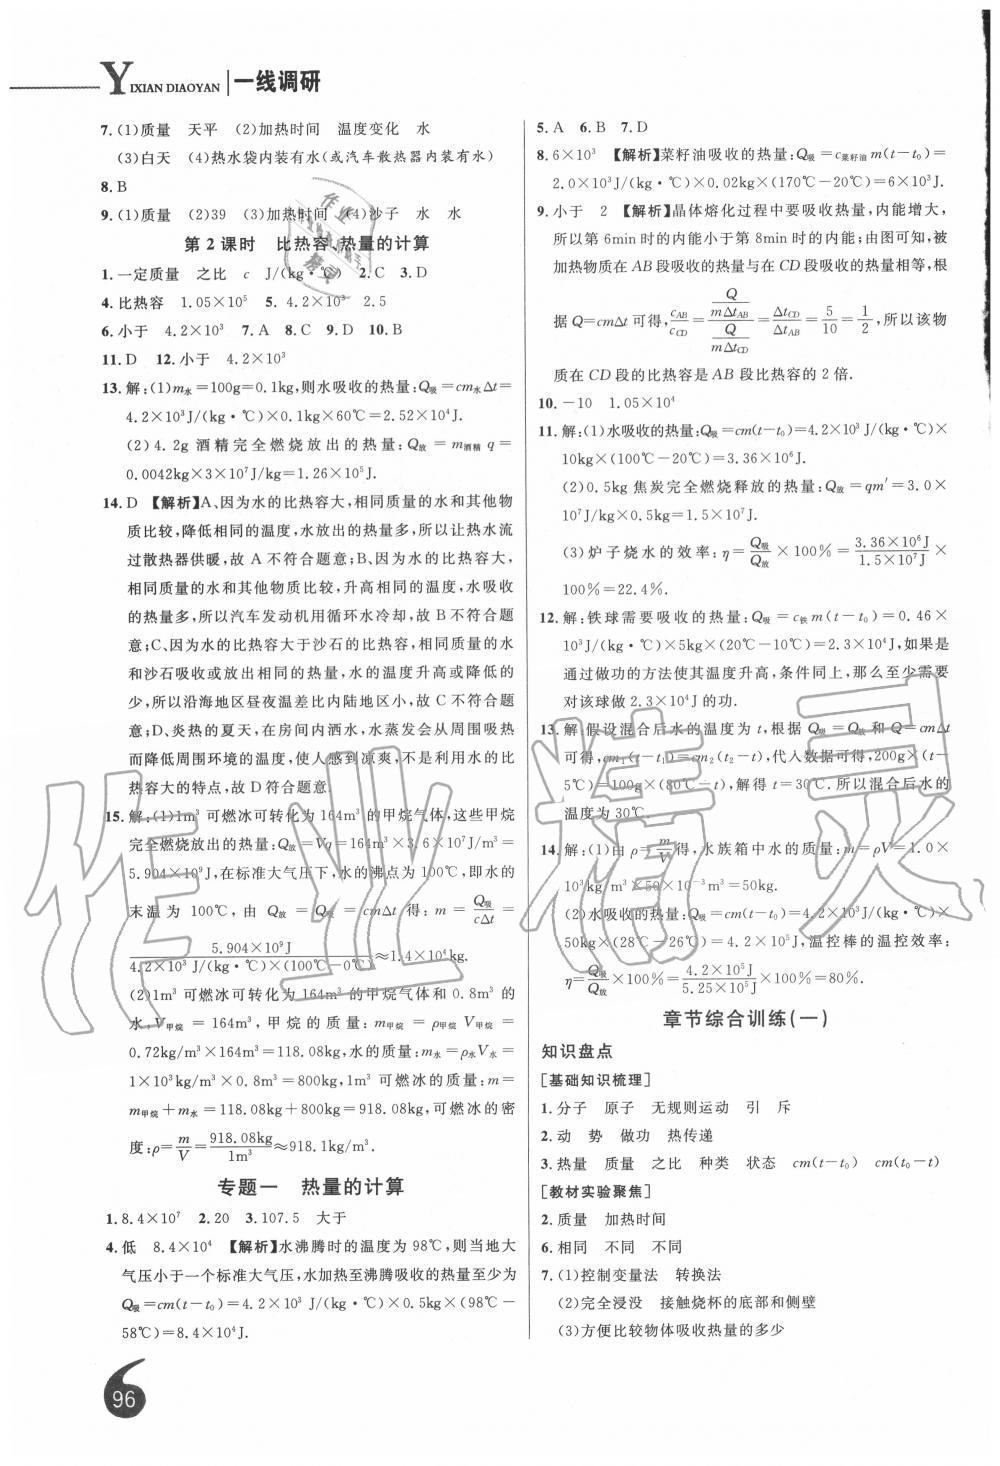 YIXIAN DIAOYAN 一线调研
7.(1)质量　天平　(2)加热时间　温度变化　水
(3)白天　(4)热水袋内装有水(或汽车散热器内装有水)
8.B
9.(1)质量　(2)39　(3)加热时间　(4)沙子　水　水
第2课时　比热容、热量的计算
1.一定质量　之比　c　J/(kg·℃)　2.C　3.D
4.比热容　1.05×10⁵　5.4.2×10³　2.5
6.小于　4.2×10³　7.A　8.C　9.D　10.B
11.D　12.小于　4.2×10³
13.解:(1)m水=100g=0.1kg,则水吸收的热量:Q吸=cm水Δt=
4.2×10³J/(kg·℃)×0.1kg×60℃=2.52×10⁴J.
(2)4.2g酒精完全燃烧放出的热量:Q放=m酒精q=
0.0042kg×3×10⁷J/kg=1.26×10⁵J.
14.D　【解析】A、因为水的比热容大,相同质量的水和其他物
质比较,降低相同的温度,水放出的热量多,所以让热水流
过散热器供暖,故A不符合题意;B、因为水的比热容大,
相同质量的水和其他物质比较,升高相同的温度,水吸收
的热量多,所以汽车发动机用循环水冷却,故B不符合题
意;C、因为水的比热容大于沙石的比热容,相同质量的水
和沙石吸收或放出相同的热量,水的温度升高或降低的
少,所以沿海地区昼夜温差比内陆地区小,故C不符合题
意;D、炎热的夏天,在房间内洒水,水蒸发会从周围吸热
而降低周围环境的温度,使人感到凉爽,不是利用水的比
热容大的特点,故D符合题意.
15.解:(1)1m³可燃冰可转化为164m³的甲烷气体,这些甲烷
完全燃烧放出的热量:Q放=Vq=164m³×3.6×10⁷J/m³=
5.904×10⁹J,在标准大气压下,水的沸点为100℃,即水的
末温为100℃,由Q放=Q吸=cmΔt得:m=Q吸/(cΔt)=
5.904×10⁹J/(4.2×10³J/(kg·℃)×(100℃-0℃))≈1.4×10⁴kg.
(2)1m³可燃冰可转化为164m³的甲烷气体和0.8m³的
水,V甲烷=164m³,甲烷的质量:m甲烷=ρ甲烷V甲烷=
0.72kg/m³×164m³=118.08kg,水的质量:m水=ρ水V水=
1×10³kg/m³×0.8m³=800kg,可燃冰的质量:m=
m甲烷+m水=118.08kg+800kg=918.08kg,可燃冰的密
度:ρ=m/V=918.08kg/1m³≈918.1kg/m³.
专题一　热量的计算
1.8.4×10⁷　2.20　3.107.5　大于
4.低　8.4×10⁴　【解析】水沸腾时的温度为98℃,则当地大
气压小于一个标准大气压,水加热至沸腾吸收的热量至少为
Q吸=cm(t-t₀)=4.2×10³J/(kg·℃)×0.5kg×(98℃-
58℃)=8.4×10⁴J.
96
5.A　6.B　7.D
8.6×10³　【解析】菜籽油吸收的热量:Q吸=c菜籽油m(t-t₀)=
2.0×10³J/(kg·℃)×0.02kg×(170℃-20℃)=6×10³J.
9.小于　2　【解析】晶体熔化过程中要吸收热量,内能增大,
所以第6min时的内能小于第8min时的内能;由图可知,被
加热物质在AB段吸收的热量与在CD段吸收的热量相等,根
据Q=cmΔt可得,cAB/cCD=(Q/(mΔtAB))/(Q/(mΔtCD))=ΔtCD/ΔtAB=5/10=1/2,所以该物
质在CD段的比热容是AB段比热容的2倍.
10.-10　1.05×10⁴
11.解:(1)水吸收的热量:Q吸=cm(t-t₀)=4.2×10³J/(kg·℃)×
10kg×(100℃-20℃)=3.36×10⁶J.
(2)0.5kg焦炭完全燃烧释放的热量:Q放=qm′=3.0×
10⁷J/kg×0.5kg=1.5×10⁷J.
(3)炉子烧水的效率:η=Q吸/Q放×100%=3.36×10⁶J/1.5×10⁷J×
100%=22.4%.
12.解:铁球需要吸收的热量:Q吸=c铁m(t-t₀)=0.46×
10³J/(kg·℃)×5kg×(20℃-10℃)=2.3×10⁴J,如果是
通过做功的方法使其温度升高,条件同上,那么至少需要
对该球做2.3×10⁴J的功.
13.解:假设混合后水的温度为t,根据Q吸=Q放和Q=cmΔt
可得,cm₁(t-t₁)=cm₂(t₂-t),代入数据可得,200g×(t-
5℃)=100g×(80℃-t),解得t=30℃.所以混合后水的
温度为30℃.
14.解:(1)由ρ=m/V得,水族箱中水的质量:m=ρV=1.0×
10³kg/m³×50×10⁻³m³=50kg.
(2)水吸收的热量:Q吸=cm(t-t₀)=4.2×10³J/(kg·℃)×
50kg×(28℃-26℃)=4.2×10⁵J,温控棒的温控效率:
η=Q吸/Q放×100%=4.2×10⁵J/5.25×10⁵J×100%=80%.
章节综合训练(一)
知识盘点
[基础知识梳理]
1.分子　原子　无规则运动　引　斥
2.动　势　做功　热传递
3.热量　质量　之比　种类　状态　cm(t-t₀)　cm(t₀-t)
[教材实验聚焦]
2.质量　加热时间
6.相同　不同　不同
7.(1)控制变量法　转换法
(2)完全浸没　接触烧杯的底部和侧壁
(3)方便比较物体吸收热量的多少
作业精灵